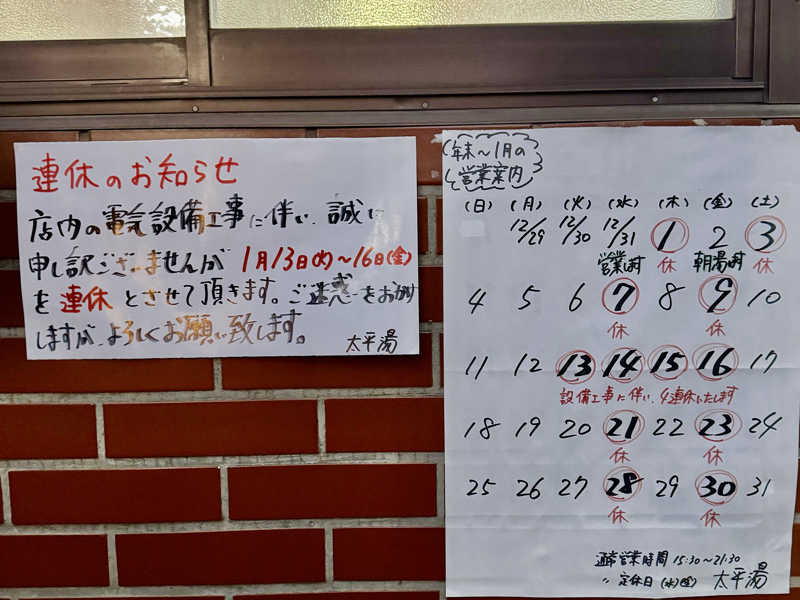 連休のお知らせ
店内の電気設備工事に伴い、誠に
申し訳ございませんが 1月13日(火)～16日(金)
を連休とさせて頂きます。ご迷惑をお掛け
しますが、よろしくお願い致します。
太平湯
年末～1月の
営業案内
(日) (月) (火) (水) (木) (金) (土)
12/29 12/30 12/31 1 2 3
営業します 休 朝湯ます 休
4 5 6 7 8 9 10
休 休
11 12 13 14 15 16 17
設備工事に伴い、4連休いたします
18 19 20 21 22 23 24
休 休
25 26 27 28 29 30 31
休 休
通常営業時間 15:30～21:30
〃 定休日 (水)(金) 太平湯